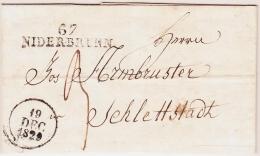 67
NIDERBRUNN
Herrn
Jos Armbruster
3
Schlettstadt
19
DEC
1829